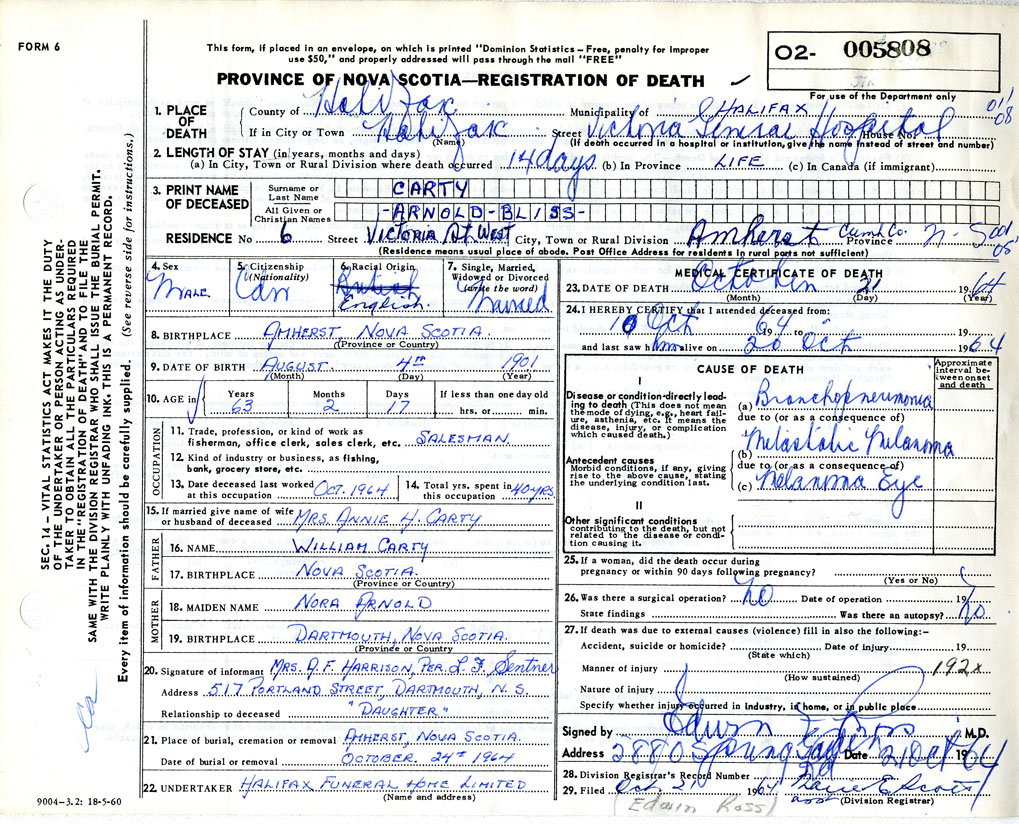 FORM 6
This form, if placed in an envelope, on which is printed "Dominion Statistics – Free, penalty for improper
use $50," and properly addressed will pass through the mail "FREE"
O2- 005808
PROVINCE OF NOVA SCOTIA—REGISTRATION OF DEATH
For use of the Department only
011
08
1. PLACE OF DEATH
County of Halifax Municipality of HALIFAX
If in City or Town Halifax Street Victoria General Hospital House No.
(Name) (If death occurred in a hospital or institution, give the name instead of street and number)
2. LENGTH OF STAY (in years, months and days)
(a) In City, Town or Rural Division where death occurred 14 days (b) In Province LIFE (c) In Canada (if immigrant)
3. PRINT NAME OF DECEASED
Surname or Last Name CARTY
All Given or Christian Names -ARNOLD-BLISS-
RESIDENCE No 6 Street VICTORIA St WEST City, Town or Rural Division Amherst Cumb. Co. Province N. S. 001
05
(Residence means usual place of abode. Post Office Address for residents in rural parts not sufficient)
4. Sex MALE.
5. Citizenship (Nationality) Can
6. Racial Origin English.
7. Single, Married, Widowed or Divorced (write the word) Married
8. BIRTHPLACE AMHERST, NOVA SCOTIA.
(Province or Country)
9. DATE OF BIRTH AUGUST. 4TH 1901
(Month) (Day) (Year)
10. AGE in Years 63 Months 2 Days 17 If less than one day old hrs. or min.
OCCUPATION
11. Trade, profession, or kind of work as
fisherman, office clerk, sales clerk, etc. SALESMAN.
12. Kind of industry or business, as fishing,
bank, grocery store, etc.
13. Date deceased last worked
at this occupation OCT. 1964
14. Total yrs. spent in
this occupation 40 YRS.
15. If married give name of wife
or husband of deceased MRS. ANNIE H. CARTY
FATHER
16. NAME WILLIAM CARTY
17. BIRTHPLACE NOVA SCOTIA.
(Province or Country)
MOTHER
18. MAIDEN NAME NORA ARNOLD
19. BIRTHPLACE DARTMOUTH, NOVA SCOTIA.
(Province or Country
20. Signature of informant MRS. A.F. HARRISON, PER. L.F. Sentner
Address 517 PORTLAND STREET, DARTMOUTH, N.S.
Relationship to deceased "DAUGHTER"
21. Place of burial, cremation or removal AMHERST, NOVA SCOTIA.
Date of burial or removal OCTOBER. 24TH 1964
22. UNDERTAKER HALIFAX FUNERAL HOME LIMITED
(Name and address)
9004-3.2: 18-5-60
MEDICAL CERTIFICATE OF DEATH
23. DATE OF DEATH October 21 1964
(Month) (Day) (Year)
24. I HEREBY CERTIFY that I attended deceased from:
10 Oct 1964 to 19
and last saw him alive on 20 Oct 1964
CAUSE OF DEATH
Approximate interval between onset and death
I
Disease or condition directly leading to death (This does not mean the mode of dying, e.g., heart failure, asthenia, etc. It means the disease, injury, or complication which caused death.)
(a) Bronchopneumonia
due to (or as a consequence of)
Antecedent causes
Morbid conditions, if any, giving rise to the above cause, stating the underlying condition last.
(b) Metastatic Melanoma
due to (or as a consequence of)
(c) Melanoma Eye
II
Other significant conditions
contributing to the death, but not related to the disease or condition causing it.
25. If a woman, did the death occur during
pregnancy or within 90 days following pregnancy?
(Yes or No)
26. Was there a surgical operation? no Date of operation 19
State findings Was there an autopsy? no
27. If death was due to external causes (violence) fill in also the following:–
Accident, suicide or homicide? Date of injury 19
(State which)
Manner of injury 192x
(How sustained)
Nature of injury
Specify whether injury occurred in industry, in home, or in public place
Signed by Edwin F. Ross M.D.
Address 2880 Spring Rd Date 21 Oct 1964
28. Division Registrar's Record Number
29. Filed Oct. 21 1964 E. Scott
asst (Division Registrar)
(Edwin Ross)
SEC. 14 – VITAL STATISTICS ACT MAKES IT THE DUTY
OF THE UNDERTAKER OR PERSON ACTING AS UNDER-
TAKER TO OBTAIN ALL THE PARTICULARS REQUIRED
IN THE "REGISTRATION OF DEATH" AND TO FILE THE
SAME WITH THE DIVISION REGISTRAR WHO SHALL ISSUE THE BURIAL PERMIT.
WRITE PLAINLY WITH UNFADING INK. THIS IS A PERMANENT RECORD.
Every item of information should be carefully supplied. (See reverse side for instructions.)